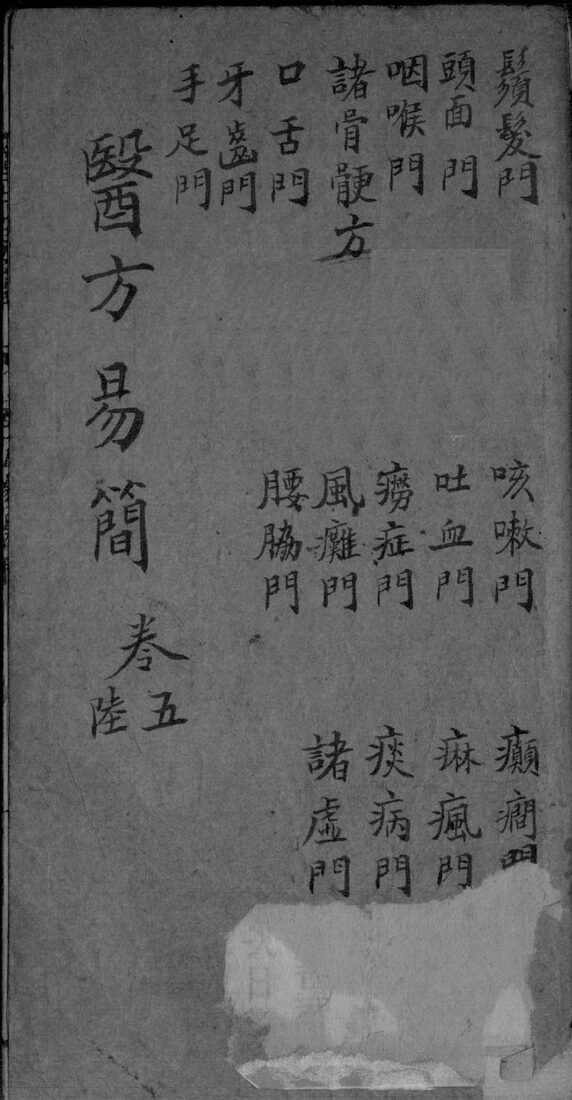 鬚髮門
頭面門
咽喉門
諸骨骾方
口舌門
牙齒門
手足門
咳嗽門
吐血門
癆症門
風癱門
腰脇門
癲癇門
痳瘋門
痰病門
諸虛門
醫方易簡
卷五
陸